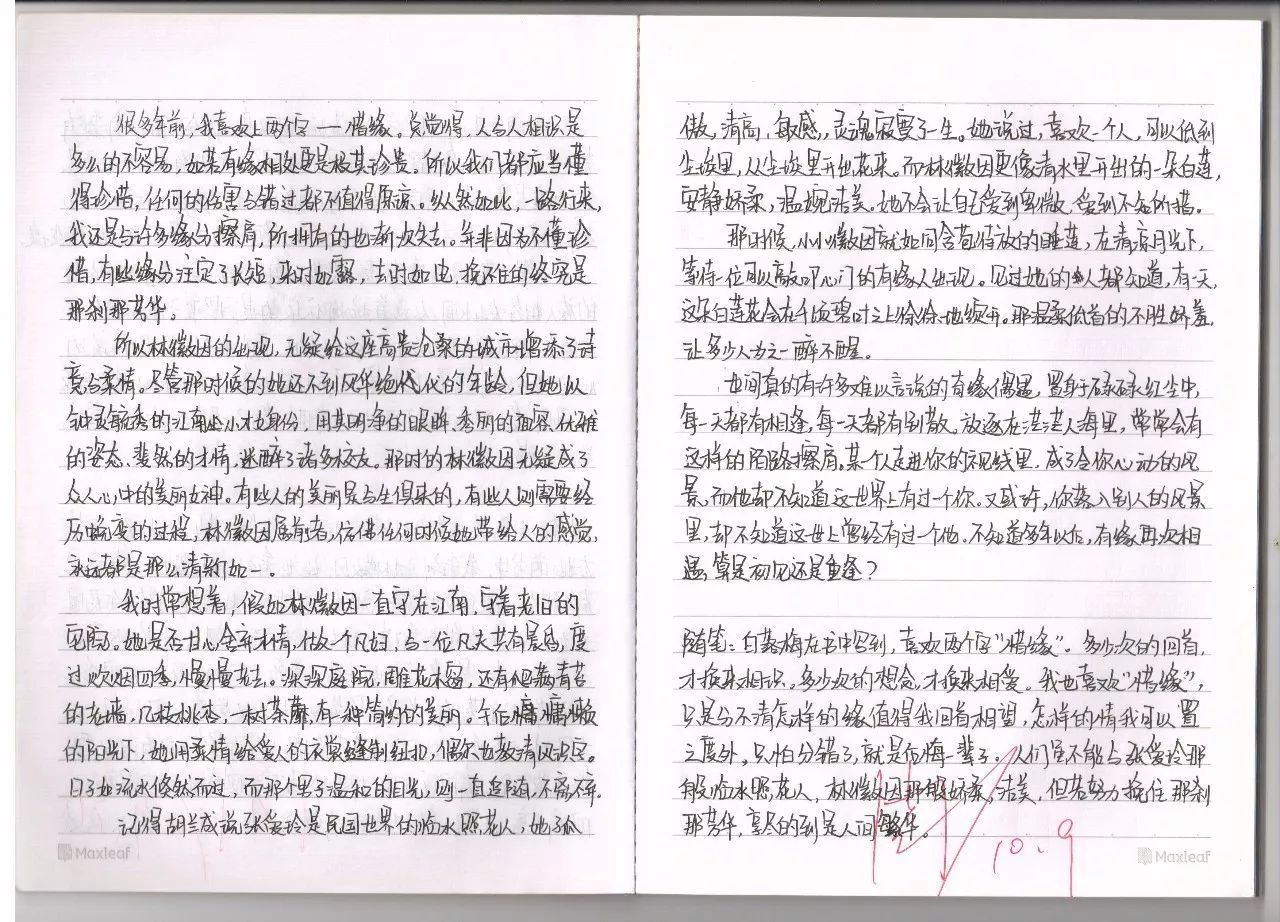 很多年前，我喜欢上两个字——惜缘。总觉得，人与人相识是
多么的不容易，如若有缘相处更是极其珍贵。所以我们都应当懂
得珍惜，任何的伤害与错过都不值得原谅。纵然如此，一路行来，
我还是与许多缘分擦肩，所拥有的也渐次失去。并非因为不懂珍
惜，有些缘份注定了长短，来时如露，去时如电，挽不住的终究是
那刹那芳华。
所以林徽因的出现，无疑给这座高贵沧桑的城市增添了诗
意与柔情。尽管那时候的她还不到风华绝代的年龄，但她以
钟灵毓秀的江南才女身份，用其明净的眼眸、秀丽的面容、优雅
的姿态、斐然的才情，迷醉了诸多校友。那时的林徽因无疑成了
众人心中的美丽女神。有些人的美丽是与生俱来的，有些人则需要经
历蜕变的过程，林徽因属前者，仿佛任何时候她带给人的感觉，
永远都是那么清新如一。
我时常想着，假如林徽因一直守在江南，守着老旧的
宅院。她是否甘心舍弃才情，做一个凡妇，与一位凡夫共有晨昏，度
过炊烟四季，慢慢老去。深深庭院，雕花木窗，还有爬满青苔
的老墙，几枝桃杏，一树荼蘼，有一种简约的美丽。午后慵慵懒懒
的阳光下，她用柔情给爱人的衣裳缝制纽扣，偶尔也教清风识字。
日子如流水悠然而过，而那个男子温和的目光，则一直追随，不离不弃。
记得胡兰成说张爱玲是民国世界的临水照花人，她孤
傲，清高，敏感，灵魂寂寞了一生。她说过，喜欢一个人，可以低到
尘埃里，从尘埃里开出花来。而林徽因更像清水里开出的一朵白莲，
安静娇柔，温婉洁美。她不会让自己受到卑微，受到不知所措。
那时候，小小徽因就如同含苞待放的睡莲，在清凉月光下，
等待一位可以敲叩心门的有缘人出现。见过她的人都知道，有一天，
这朵白莲花会在千顷碧叶之上徐徐地绽开。那温柔低首的不胜娇羞，
让多少人为之一醉不醒。
世间真的有许多难以言说的有缘偶遇，置身于碌碌红尘中，
每一天都有相逢，每一天都有别散。放逐在茫茫人海里，常常会有
这样的陌路擦肩。某个人走进你的视线里，成了令你心动的风
景，而他却不知道这世界上有过一个你。又或许，你落入别人的风景
里，却不知道这世上曾经有过一个他。不知道多年以后，有缘再次相
遇，算是初见还是重逢？
随笔：白落梅在书中写到，喜欢两个字“惜缘”。多少次的回首，
才换来相识。多少次的想念，才换来相爱。我也喜欢“惜缘”，
只是分不清怎样的缘值得我回首相望，怎样的情我可以置
之度外。只怕分错了，就是后悔一辈子。人们虽不能与张爱玲那
般临水照花人，林徽因那般娇柔、洁美，但若努力挽住那刹
那芳华，享尽的到是人间繁华。
10.9
Maxleaf
Maxleaf